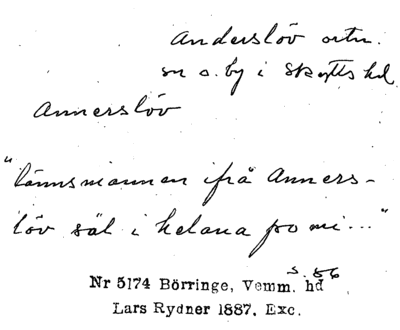 Anderslöv ortn.
sn o. by i Skytts hd
Annerslöv
"länsmannen ifrå Anners-
löv säl i helana po mi..."
s. 56
Nr 5174 Börringe, Vemm. hd
Lars Rydner 1887. Exc.